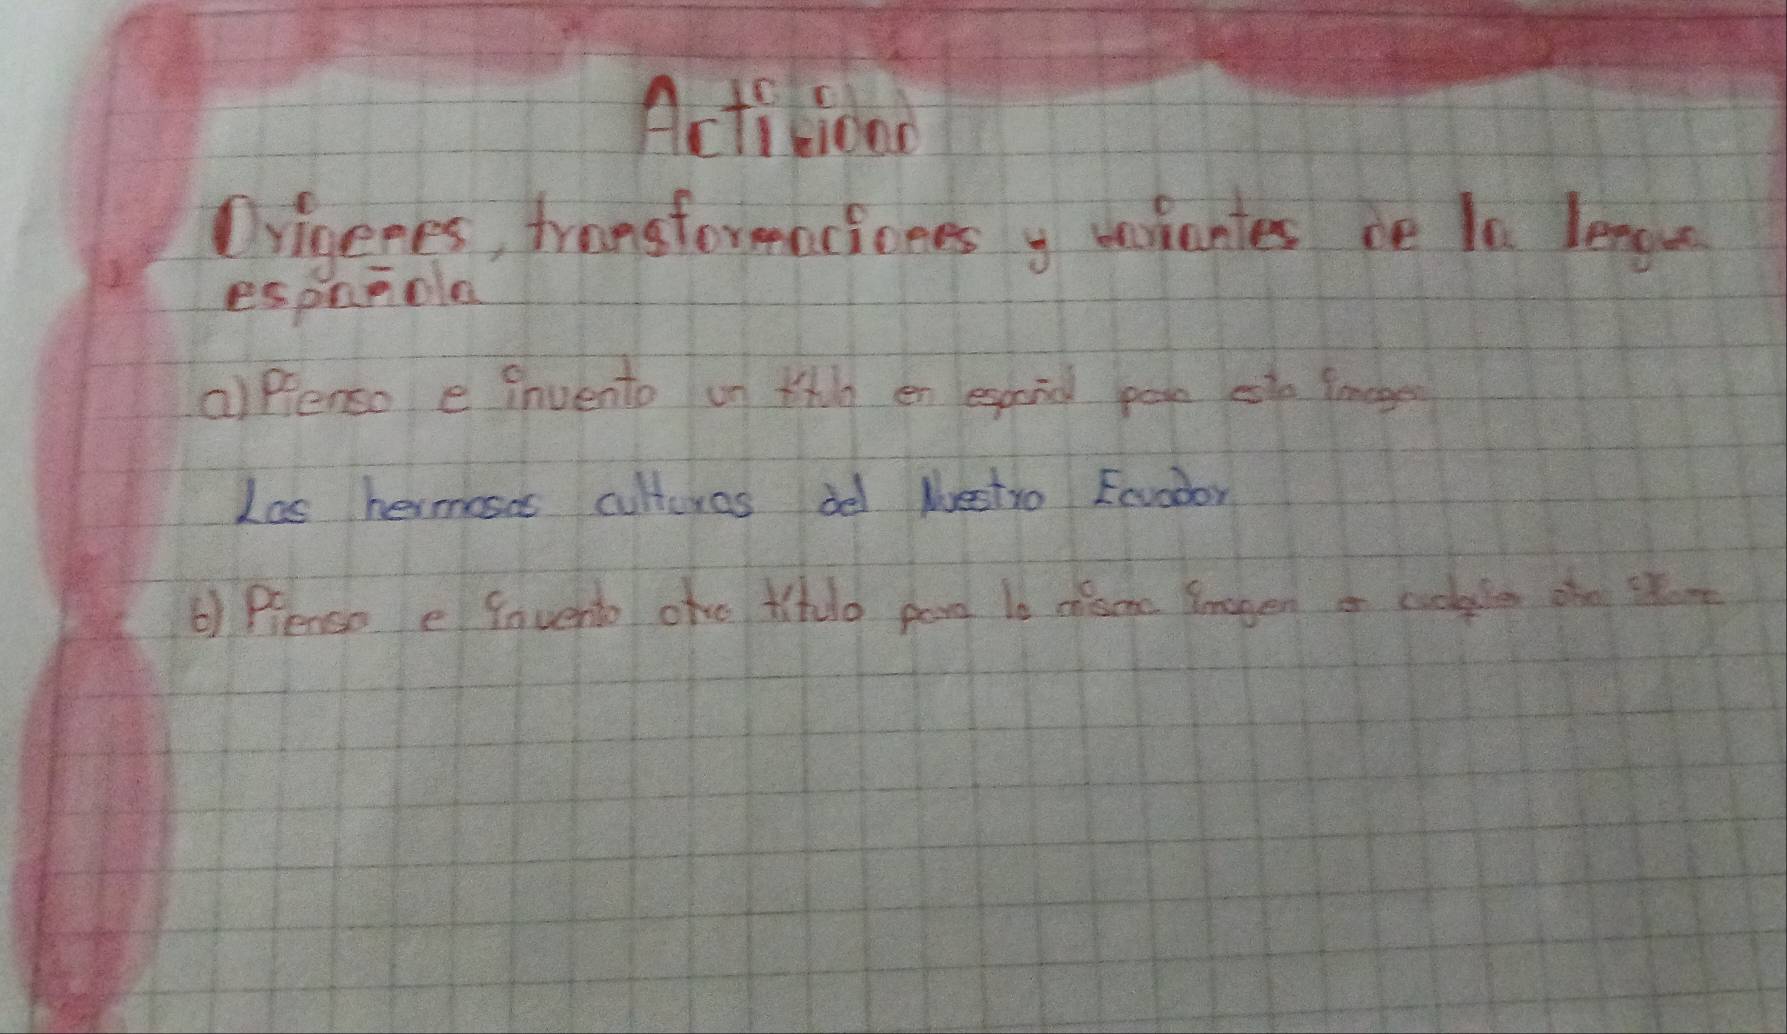 Actividad
Orígenes, transformaciones y variantes de la lengua
española
a) Pienso e invento un título en español para esta imagen
Las hermosas culturas del Nuestro Ecuador
b) Pienso e invento otro título para la misma imagen cualquier otro